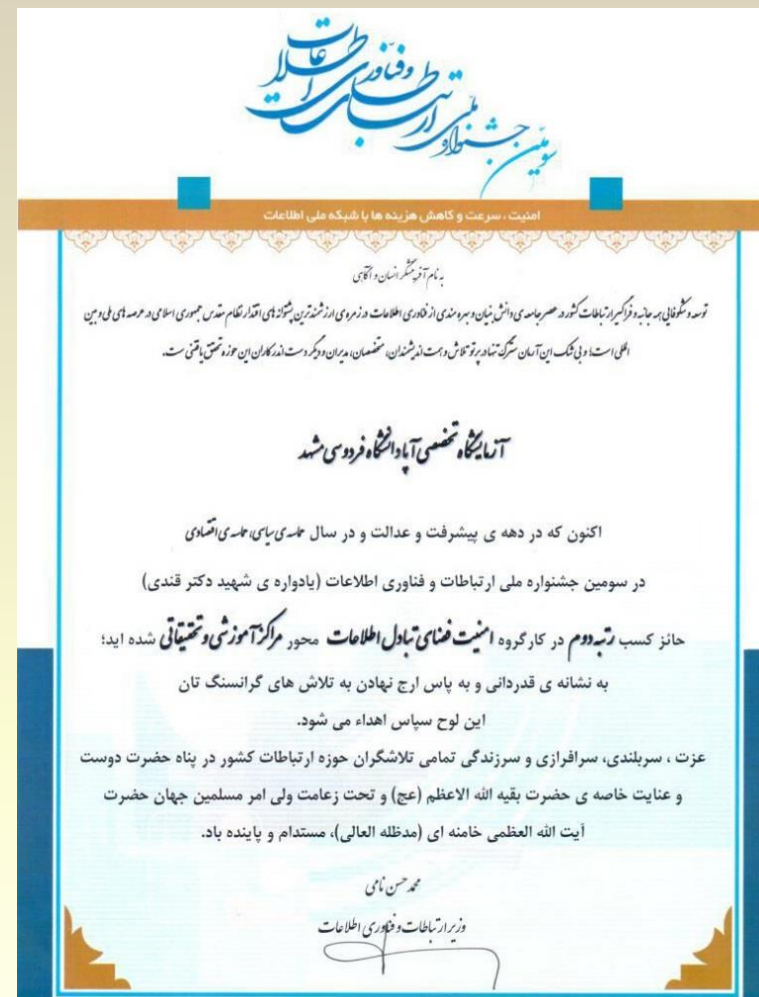 سومین جشنواره ملی ارتباطات و فناوری اطلاعات
امنیت ، سرعت و کاهش هزینه ها با شبکه ملی اطلاعات
به نام آفرینشگر انسان و آگاهی
توسعه و شکوفایی همه جانبه و فراگیر ارتباطات کشور در عصر جامعه ی دانش بنیان و بهره مندی از فناوری اطلاعات در زمره ی ارزشمندترین پشتوانه های اقتدار نظام مقدس جمهوری اسلامی در عرصه های ملی و بین
المللی است؛ و بی شک این آرمان سترگ تنها در پرتو تلاش و همت اندیشمندان، متخصصان، مدیران و دیگر دست اندرکاران این حوزه تحقق یافتنی ست.
آزمایشگاه تخصصی آپا دانشگاه فردوسی مشهد
اکنون که در دهه ی پیشرفت و عدالت و در سال حماسه ی سیاسی، حماسه ی اقتصادی
در سومین جشنواره ملی ارتباطات و فناوری اطلاعات (یادواره ی شهید دکتر قندی)
حائز کسب رتبه دوم در کارگروه امنیت فضای تبادل اطلاعات محور مراکز آموزشی و تحقیقاتی شده اید؛
به نشانه ی قدردانی و به پاس ارج نهادن به تلاش های گرانسنگ تان
این لوح سپاس اهداء می شود.
عزت ، سربلندی، سرافرازی و سرزندگی تمامی تلاشگران حوزه ارتباطات کشور در پناه حضرت دوست
و عنایت خاصه ی حضرت بقیه الله الاعظم (عج) و تحت زعامت ولی امر مسلمین جهان حضرت
آیت الله العظمی خامنه ای (مدظله العالی)، مستدام و پاینده باد.
محمد حسن نامی
وزیر ارتباطات و فناوری اطلاعات